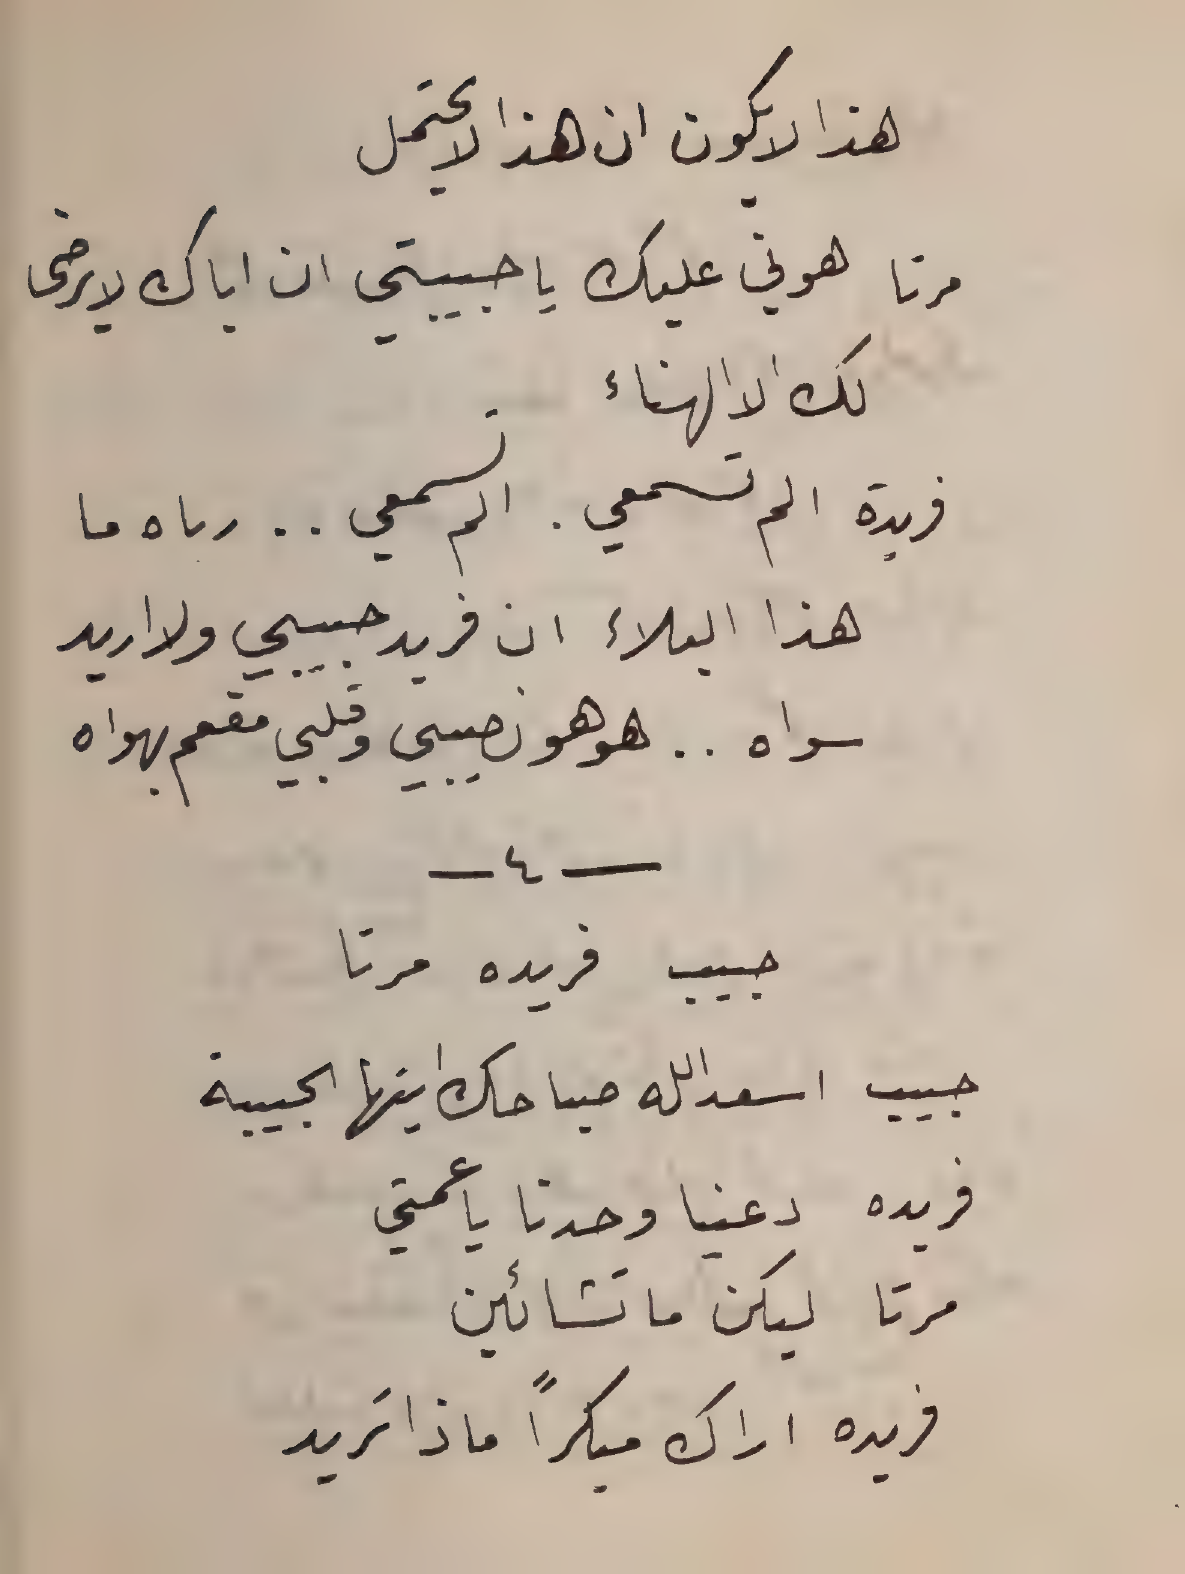 هذا لا يكون ان هذا لا يحتمل
مرتا هوني عليك يا حبيبتي ان اباك لا يرضى
لك الا الهناء
فريدة الم تسمعي . الم تسمعي .. رباه ما
هذا البلاء ان فريد حبيبي ولا اريد
سواه .. هو هو نصيبي وقلبي مفعم بهواه
— ٤ —
حبيب فريده مرتا
حبيب اسعد الله صباحك ايتها الحبيبة
فريده دعينا وحدنا يا عمتي
مرتا ليكن ما تشائين
فريده اراك مبكراً ماذا تريد